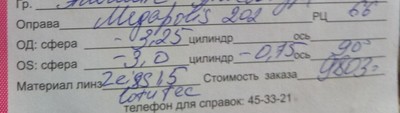 Гр.
Оправа Megapolis 202 РЦ 66
ОД: сфера -3,25 цилиндр ось
OS: сфера -3,0 цилиндр -0,75 ось 90°
Материал линз Zeiss 1.5 Стоимость заказа 9803=
LotuTec
телефон для справок: 45-33-21